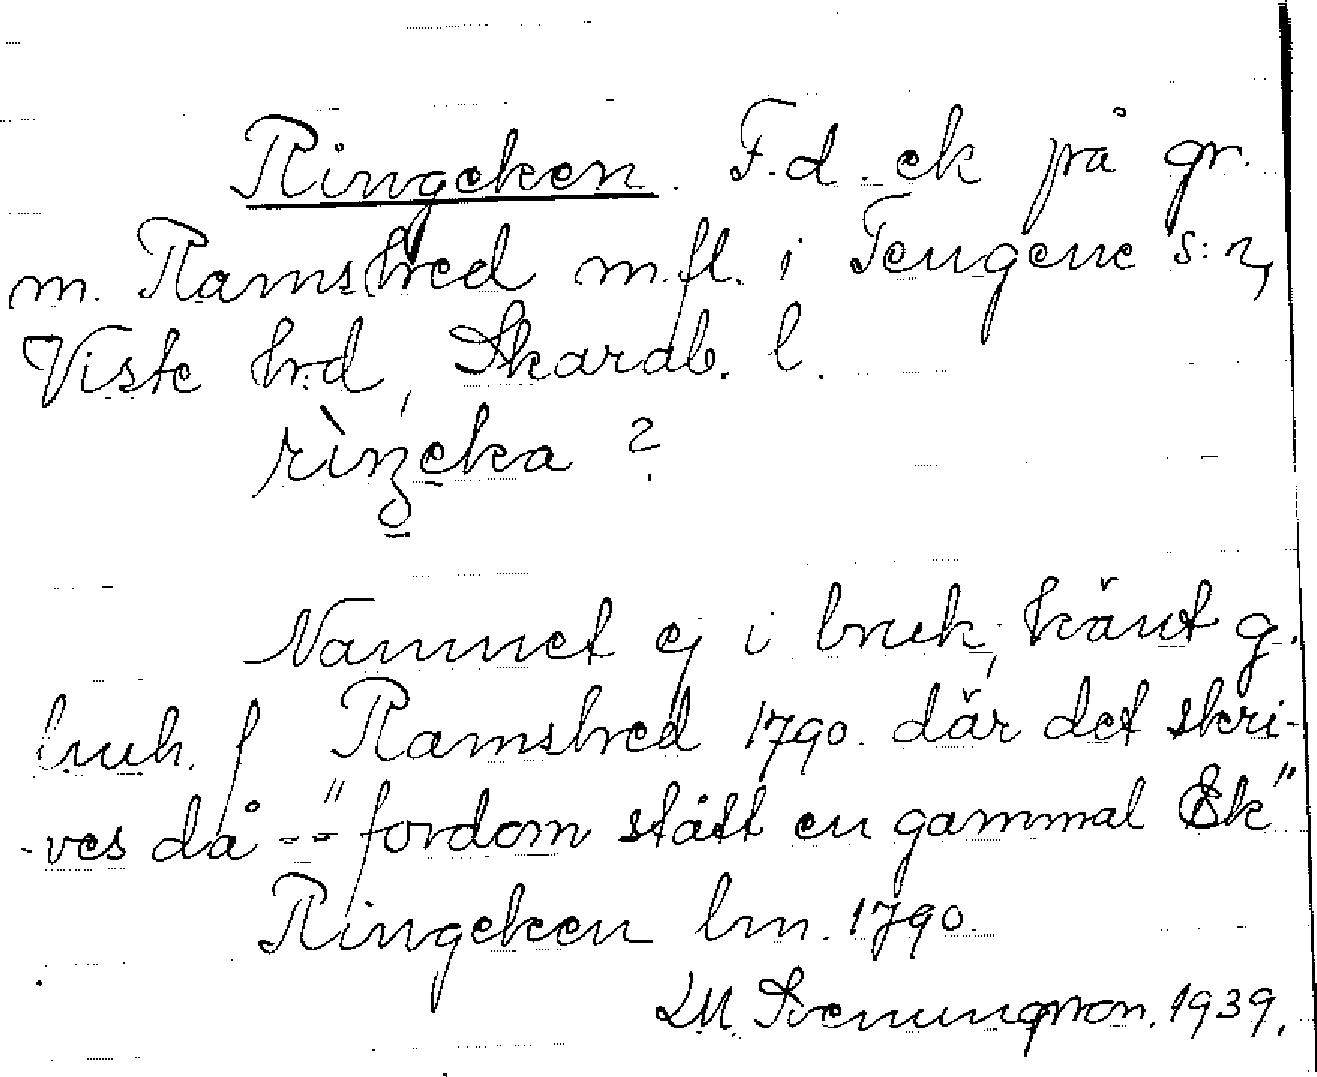 Ringeken. F.d. ek på gr.
m. Ramshed m.fl. i Tengene s:n,
Viste hrd, Skarab. l.
rìnȝeka ?
Namnet ej i bruk, känt g.
lm f Ramshed 1790. där det skri-
-ves då --"fordom stått en gammal Ek"
Ringeken lm. 1790.
LM. Svenungsson. 1939.